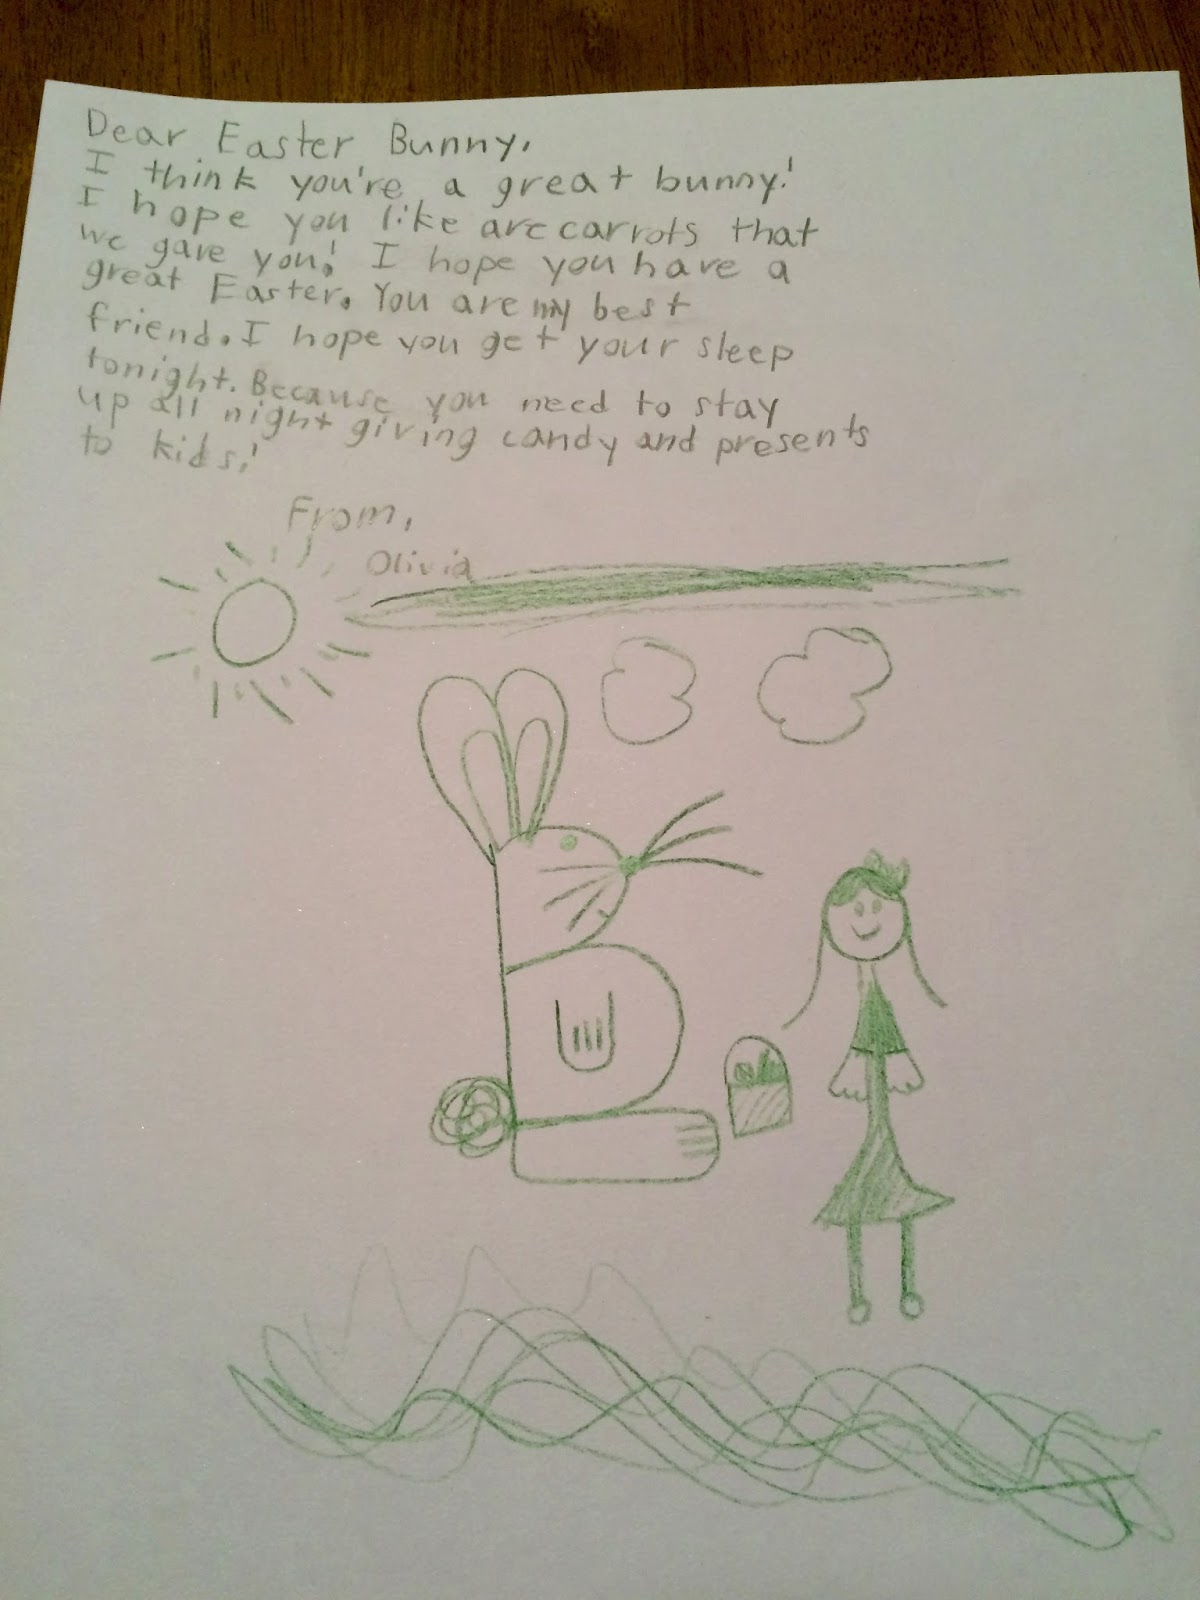 Dear Easter Bunny,
I think you're a great bunny!
I hope you like are carrots that
we gave you! I hope you have a
great Easter. You are my best
friend. I hope you get your sleep
tonight. Because you need to stay
up all night giving candy and presents
to kids!
From,
Olivia